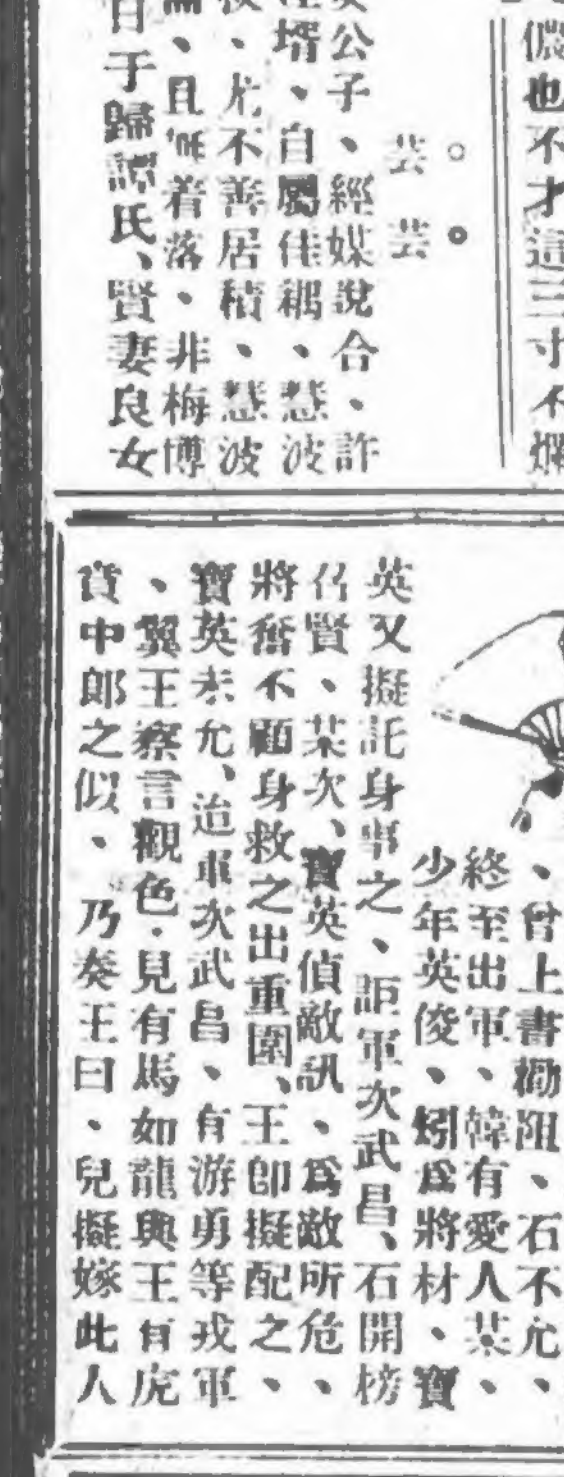 儂也不才這三寸不爛
芸芸
公子、經媒說合、許
壻、自屬佳耦、慧波
、尤不善居積、慧波
、且無着落、非梅博
日于歸譚氏、賢妻良女
、曾上書勸阻、石不允、
終至出軍、韓有愛人某、
少年英俊、矧爲將材、寶
英又擬託身事之、詎軍次武昌、石開榜
召賢、某次、寶英偵敵訊、爲敵所危、
將奮不顧身救之出重圍、王卽擬配之、
寶英未允、迨軍次武昌、有游勇等戎軍
、翼王察言觀色、見有馬如龍與王有虎
賁中郎之似、乃奏王曰、兒擬嫁此人